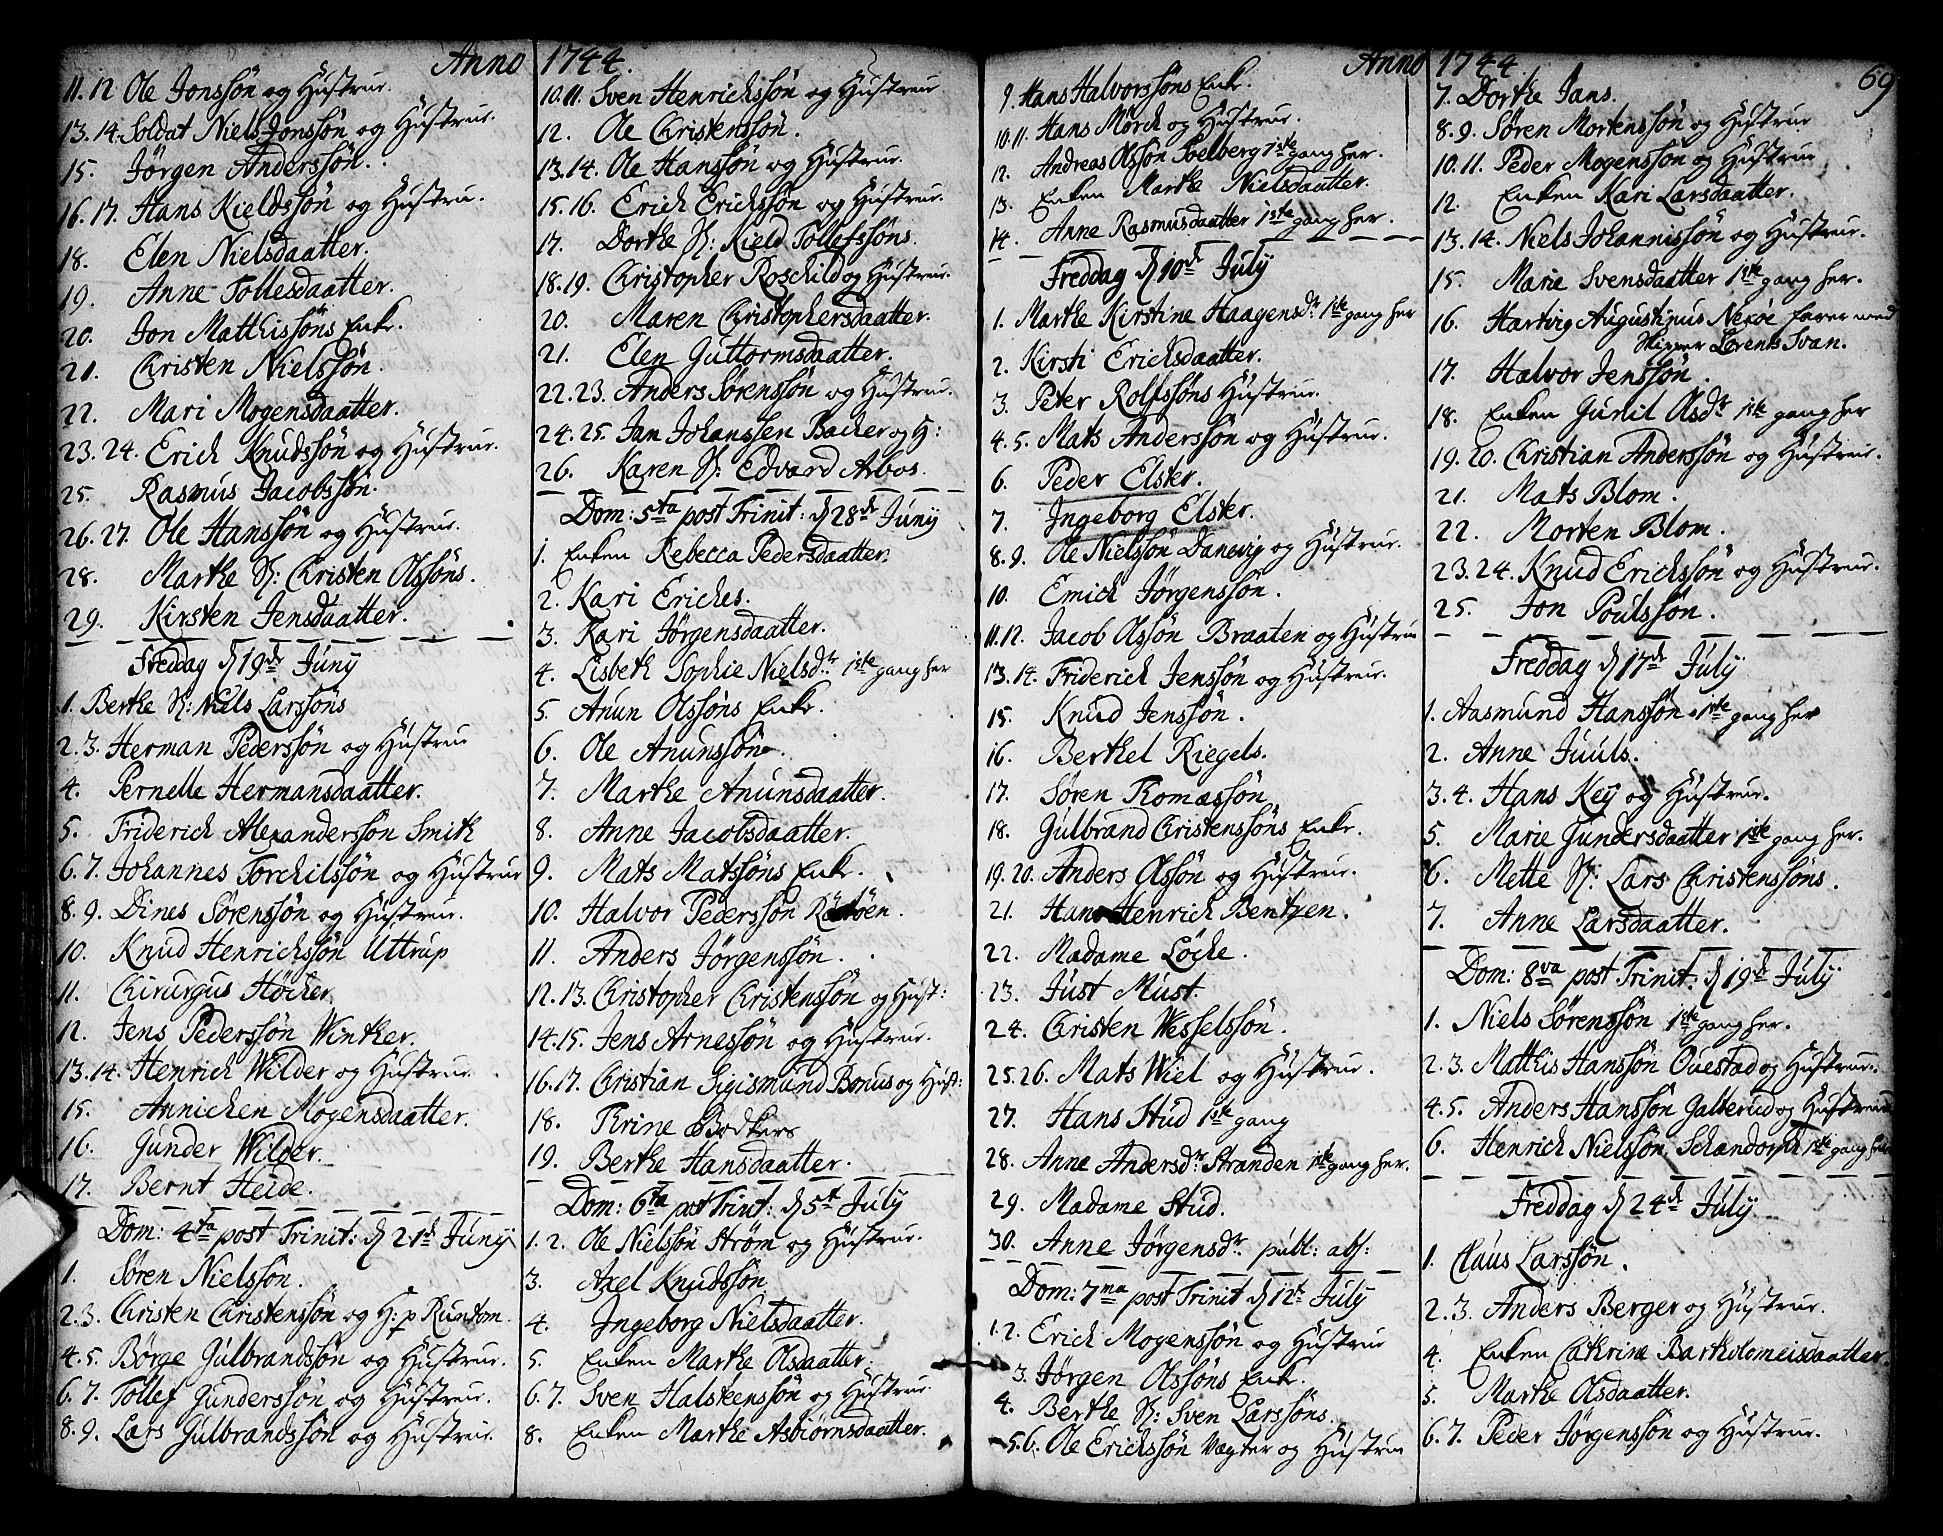 Anno 1744.
11. 12 Ole Jonssön og Hüstrue.
13. 14. Soldat Niels Jonssön og Hüstrue.
15. Jörgen Anderssön.
16. 17. Hans Kieldssön og Hüstru.
18. Elen Nielsdaatter.
19. Anne Tollesdaatter.
20. Jon Matthissöns Enke.
21. Christen Nielssön.
22. Mari Mogensdaatter.
23. 24. Erich Knudssön og Hüstrue.
25. Rasmus Jacobssön.
26. 27. Ole Hanssön og Hüstrue.
28. Marthe S: Christen Olssöns.
29. Kirsten Jensdaatter.
Freddag d 19de Júnÿ
1. Berthe S: Niels Larssöns
2. 3. Herman Pederssön og Hüstrue
4. Pernelle Hermansdaatter.
5. Friderich Alexanderssön Smith
6. 7. Johannes Torchilssön og Hüstrue
8. 9. Dines Sörenssön og Hüstrue.
10. Knud Henrichssön Uttrup
11. Chirurgus Höcher.
12. Jens Pederssön Winther.
13. 14. Henrich Wilder og Hüstrue.
15. Annichen Mogensdaatter.
16. Günder Wilder.
17. Bernt Heide.
Dom: 4ta post Trinit: d 21de Júnÿ
1. Sören Nielssön.
2. 3. Christen Christenssön og H: p Runtom.
4. 5. Börge Gúlbrandssön og Hüstrue.
6. 7. Tollef Gúnderssön og Hüstrue.
8. 9. Lars Gúlbrandssön og Hüstrue.
10. 11. Sven Henrichssön og Hüstrue
12. Ole Christenssön.
13. 14. Ole Hanssön og Hüstrue.
15. 16. Erich Erichssön og Hüstrue.
17. Dorthe S: Kield Tollefssöns.
18. 19. Christopher Roschild og Hüstrue.
20. Maren Christophersdaatter.
21. Elen Guttormsdaatter.
22. 23. Anders Sörenssön og Hüstrue.
24. 25. Jan Johanssen Bacher og H:
26. Karen S: Edvard Arbos.
Dom: 5ta post Trinit: d 28de Júnÿ
1. Enken Rebecca Pedersdaatter.
2. Kari Eriches.
3. Kari Jörgensdaatter.
4. Lisbeth Sophie Nielsdr. 1ste gang her
5. Anun Olssöns Enke.
6. Ole Anunssön.
7. Marthe Anúnsdaatter.
8. Anne Jacobsdaatter.
9. Mats Matssöns Enke.
10. Halvor Pederssön.
11. Anders Jörgenssön.
12. 13. Christopher Christenssön og Hüst:
14. 15. Jens Arnessön og Hüstrue.
16. 17. Christian Sigismund Bonus og Hüst:
18. Thrine Bödkers
19. Berthe Hansdaatter.
Dom: 6ta post Trinit: d 5t July
1. 2. Ole Nielssön Ström og Hüstrue.
3. Axel Knudssön
4. Ingeborg Nielsdaatter.
5. Enken Marthe Olsdaatter.
6. 7. Sven Halstenssön og Hüstrue.
8. Enken Marthe Asbiörnsdaatter.
Anno 1744 69
9. Hans Halvorssöns Enke.
10. 11. Hans Mörch og Hüstrue.
12. Andreas Olssön Soelberg 1ste gang her.
13. Enken Marthe Nielsdaatter.
14. Anne Rasmusdaatter 1ste gang her.
Freddag d 10de Júlÿ
1. Marthe Kirstine Haagensdr. 1ste gang her
2. Kirsti Erichsdaatter.
3. Peter Rolfssöns Hüstrue.
4. 5. Mats Anderssön og Hüstrue.
6. Peder Elster.
7. Ingeborg Elster.
8. 9. Ole Nielssön Danevig og Hüstrue.
10. Emich Jörgenssön.
11. 12. Jacob Olssön Braaten og Hüstrue
13. 14. Friderich Jenssön og Hüstrue.
15. Knud Jenssön.
16. Berthel Riegels.
17. Sören Thomassön
18. Gúlbrand Christenssöns Enke.
19. 20. Anders Olssön og Hüstrue.
21. Hans Henrich Bentzen.
22. Madame Löche.
23. Júst Must.
24. Christen Wesselssön.
25. 26. Mats Wiel og Hüstrue.
27. Hans Stud 1ste gang
28. Anne Andersdr. Stranden 1ste gang her.
29. Madame Stud.
30. Anne Jörgensdr. públ: abs:
Dom: 7ma post Trinit d 12te Júlÿ
1. 2. Erich Mogenssön og Hüstrue
3. Jörgen Olssöns Enke.
4. Berthe S: Sven Larssöns.
5. 6. Ole Erichssön Vægter og Hüstrue
7. Dorthe Jans.
8. 9. Sören Mortenssön og Hüstrue
10. 11. Peder Mogenssön og Hüstrue
12. Enken Kari Larsdaatter.
13. 14. Niels Johannissön og Hüstrue.
15. Marie Svensdaatter 1ste gang her.
16. Hartvig Augustinus Nexöe farer med
Skipper Lorents Svan.
17. Halvor Jenssön.
18. Enken Gunil Olsdr. 1ste gang her
19. 20. Christian Anderssön og Hüstrue.
21. Mats Blom.
22. Morten Blom.
23. 24. Knud Erichssön og Hüstrue.
25. Jon Poulssön.
Freddag d 17de Júlÿ
1. Aasmund Hanssön 1ste gang her
2. Anne Júuls.
3. 4. Hans Keÿ og Hüstrue.
5. Marie Gundersdaatter 1ste gang her.
6. Mette S: Lars Christenssöns.
7. Anne Larsdaatter.
Dom: 8va post Trinit: d 19de Júlÿ
1. Niels Sörenssön 1ste gang her.
2. 3. Matthis Hanssön Ouestad og Hüstrue.
4. 5. Anders Hanssön Galterud og Hüstrue
6. Henrich Nielssön Schandorph 1ste gang her
Freddag d 24de Júlÿ
1. Claus Larssön.
2. 3. Anders Berger og Hüstrue.
4. Enken Cathrine Bartholomeisdaatter.
5. Marthe Olsdaatter.
6. 7. Peder Jörgenssön og Hüstrue.